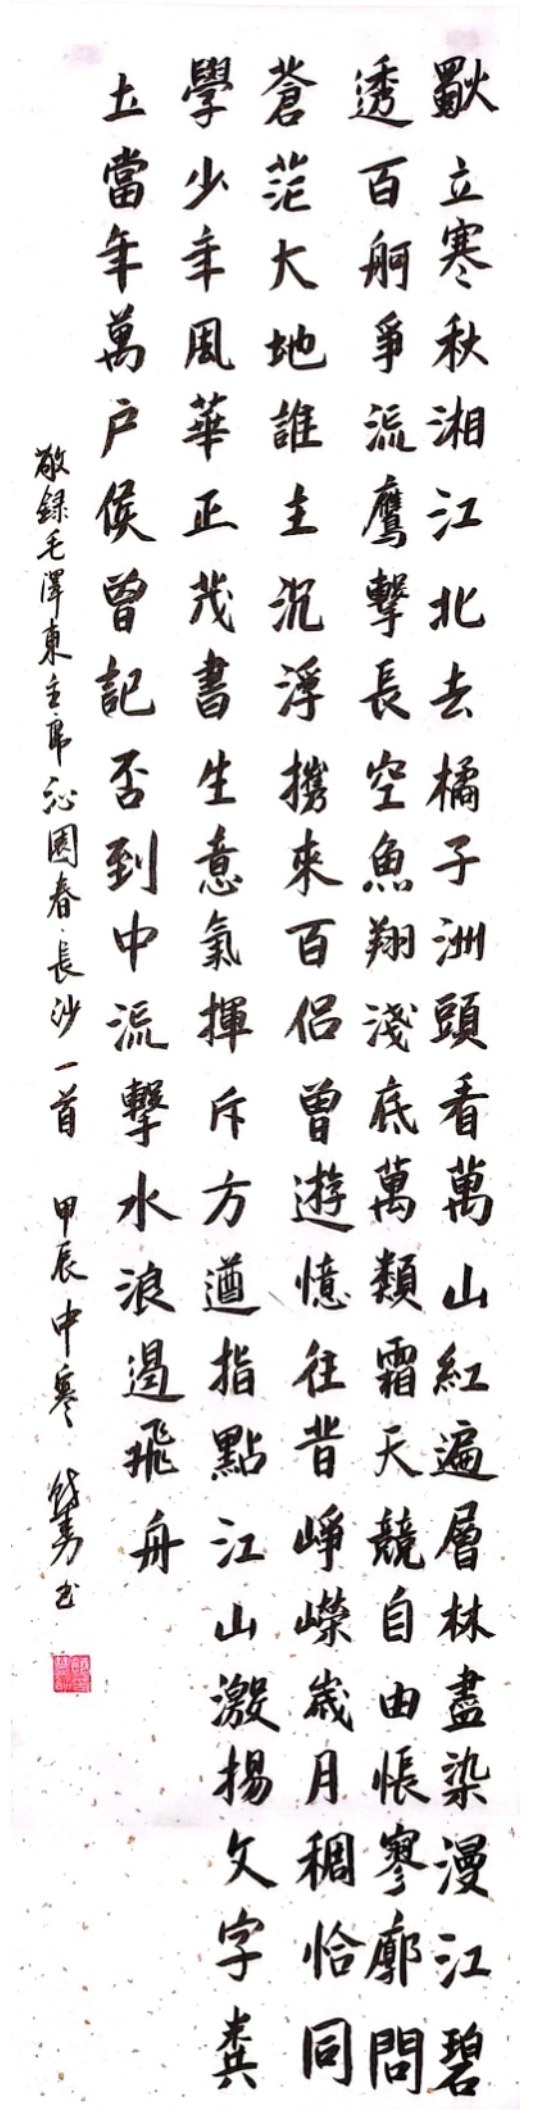 獨立寒秋湘江北去橘子洲頭看萬山紅遍層林盡染漫江碧
透百舸爭流鷹擊長空魚翔淺底萬類霜天競自由悵寥廓問
蒼茫大地誰主沉浮攜來百侣曾遊憶往昔崢嶸歲月稠恰同
學少年風華正茂書生意氣揮斥方遒指點江山激揚文字糞
土當年萬户侯曾記否到中流擊水浪遏飛舟
敬録毛澤東主席沁園春長沙一首 甲辰中寒